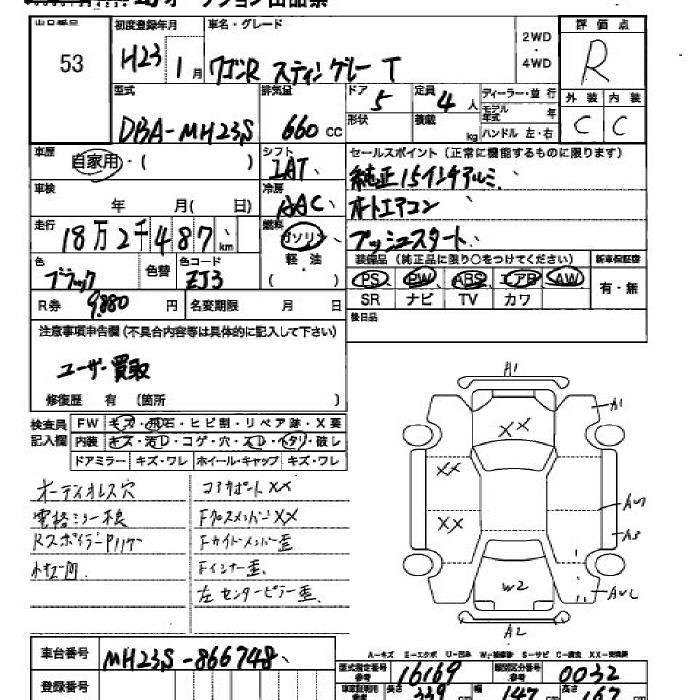 オークション出品票
出品番号 53
初度登録年月 H23 1月
車名・グレード ワゴンR スティングレー T
2WD・4WD
評価点 R
外装 C 内装 C
型式 DBA-MH23S
排気量 660cc
ドア 5 形状
定員 4人 積載 kg
ディーラー・並行
モデル年式 年
ハンドル 左・右
車歴 自家用・( )
シフト IAT
セールスポイント(正常に機能するものに限ります)
純正15インチアルミ、
オートエアコン
プッシュスタート、
車検 年 月( 日)
冷房 AAC
走行 18万2千487km
燃料 ガソリン 軽・油
色 ブラック 色替
色コード ZJ3
装備品(純正品に限り○をつけてください) 新車保証書
PS PW ABS エアB AW 有・無
SR ナビ TV カワ
R券 9,880円 名変期限 月 日
後日品
注意事項申告欄(不具合内容等は具体的に記入して下さい)
ユーザー買取
修復歴 有 (箇所 )
検査員記入欄
FW キズ・飛石・ヒビ割・リペア跡・X要
内装 キズ・汚レ・コゲ・穴・スレ・ヘタリ・破レ
ドアミラー キズ・ワレ ホイール・キャップ キズ・ワレ
オーディオレス穴
電格ミラー不良
Rスポイラー
コアサポートXX
FクロスメンバーXX
Fサイドメンバー歪
Fインナー歪、
左センターピラー歪、
A1
A1
XX
XX
XX
A3
W2
A2
A-キズ E-エクボ U-凹み W-補修跡 S-サビ C-腐食 XX-交換済
車台番号 MH23S-866748
型式指定番号 16169
類別区分番号 0032
登録番号
長さ 339cm 幅 147cm 高さ 167cm